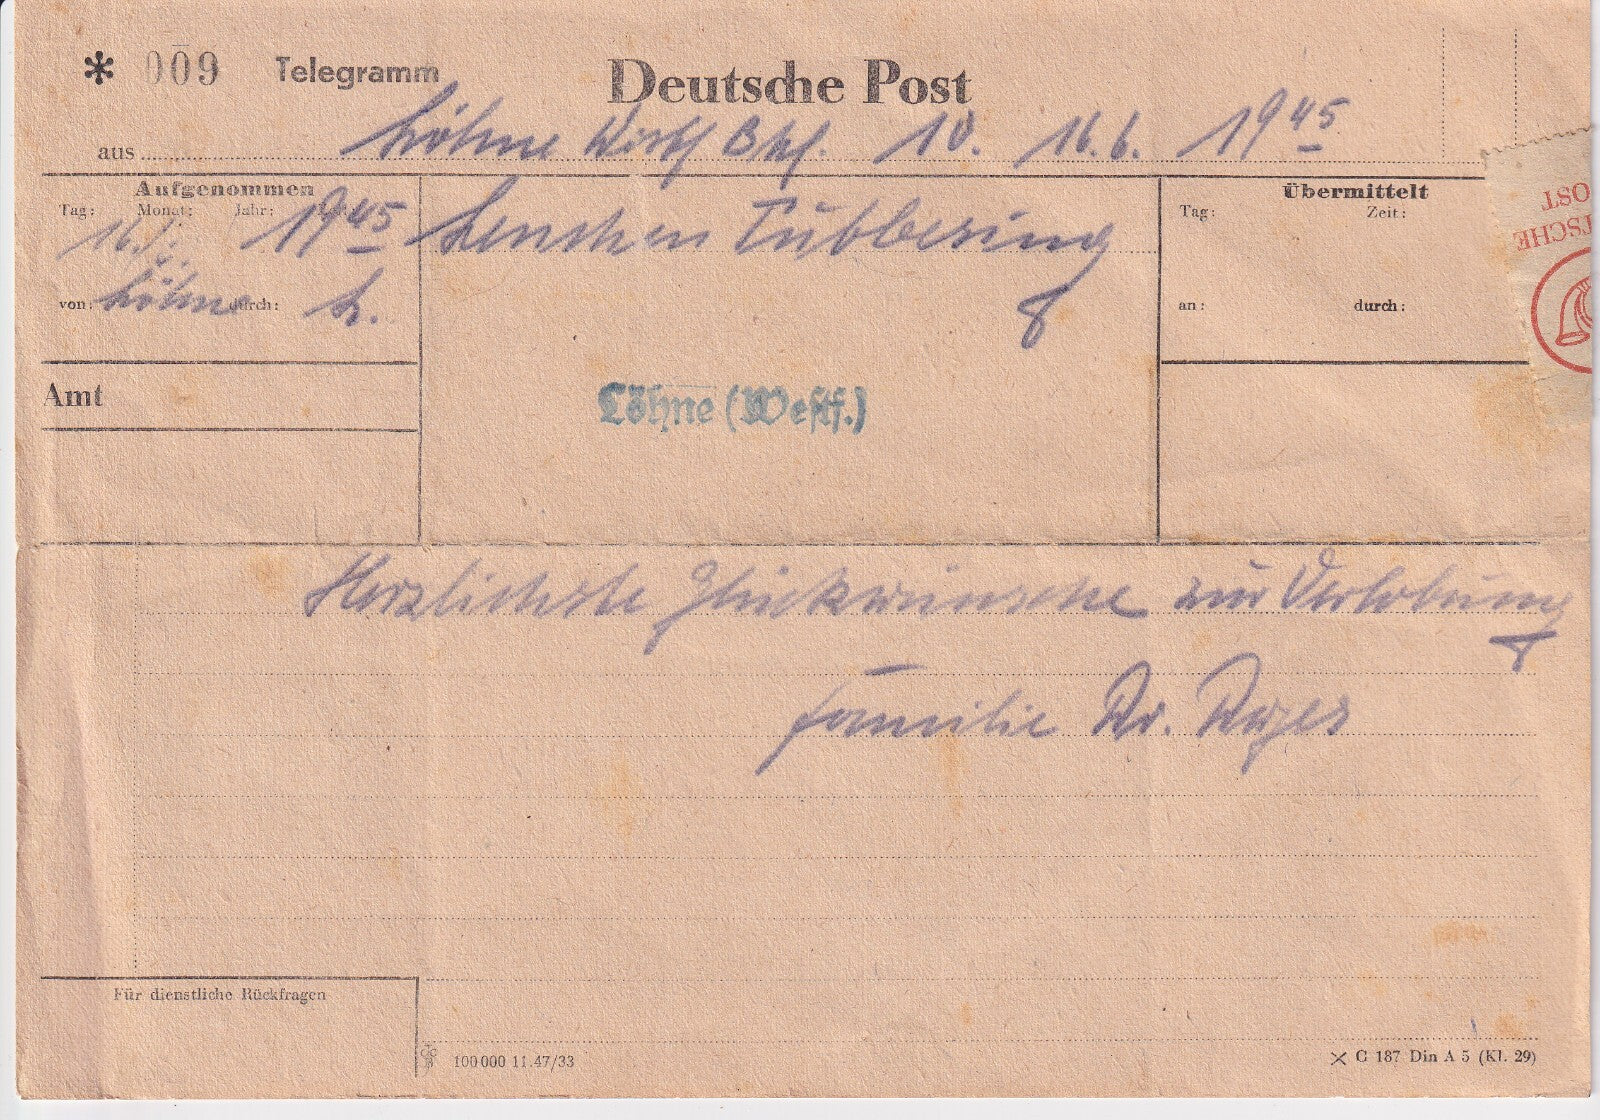 * 009 Telegramm Deutsche Post
aus Löhne Westf Bhf. 10. 16.6. 1945
Aufgenommen
Tag: Monat: Jahr:
1945
von: Löhne durch: L.
Lenchen Tübbesing
Übermittelt
Tag: Zeit:
an: durch:
TSCHE
OST
Amt
Löhne (Westf.)
Herzlichste Glückwünsche zur Verlobung
Familie Dr.
Für dienstliche Rückfragen
100 000 11.47/33
C 187 Din A 5 (Kl. 29)